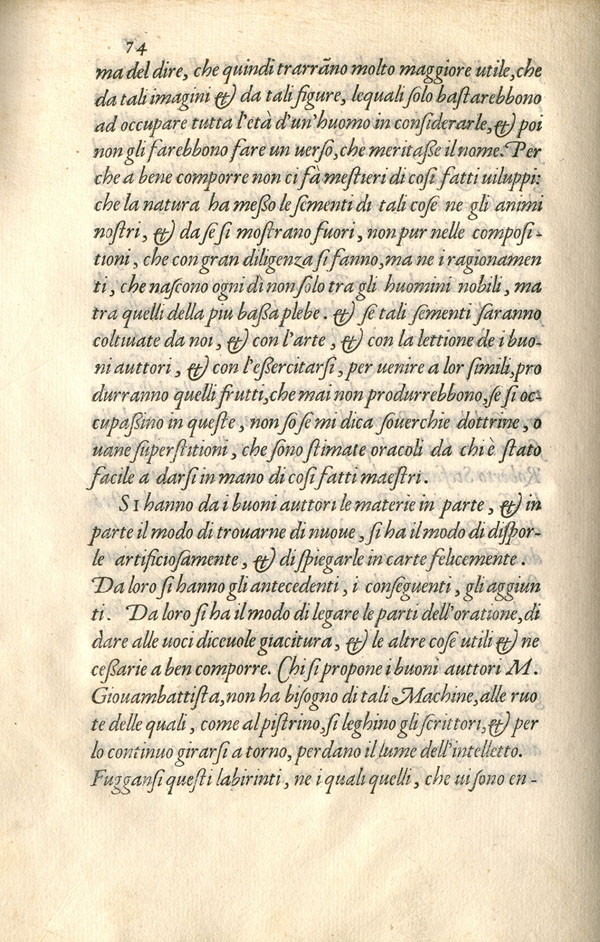 74
ma del dire, che quindi trarrāno molto maggiore utile, che
da tali imagini & da tali figure, lequali ſolo baſtarebbono
ad occupare tutta l'età d'un'huomo in conſiderarle, & poi
non gli farebbono fare un uerſo, che meritaße il nome. Per
che a bene comporre non ci fà meſtieri di coſi fatti uiluppi:
che la natura ha meßo le ſementi di tali coſe ne gli animi
noſtri, & da ſe ſi moſtrano fuori, non pur nelle compoſi-
tioni, che con gran diligenza ſi fanno, ma ne i ragionamen
ti, che naſcono ogni dì non ſolo tra gli huomini nobili, ma
tra quelli della piu baßa plebe. & ſe tali ſementi ſaranno
coltiuate da noi, & con l'arte, & con la lettione de i buo-
ni auttori, & con l'eßercitarſi, per uenire a lor ſimili, pro
durranno quelli frutti, che mai non produrrebbono, ſe ſi oc-
cupaßino in queſte, non ſo ſe mi dica ſouerchie dottrine, o
uane ſuperſtitioni, che ſono ſtimate oracoli da chi è ſtato
facile a darſi in mano di coſi fatti maeſtri.
SI hanno da i buoni auttori le materie in parte, & in
parte il modo di trouarne di nuoue, ſi ha il modo di diſpor-
le artificioſamente, & di ſpiegarle in carte felicemente.
Da loro ſi hanno gli antecedenti, i conſeguenti, gli aggiun
ti. Da loro ſi ha il modo di legare le parti dell'oratione, di
dare alle uoci diceuole giacitura, & le altre coſe utili & ne
ceßarie a ben comporre. Chi ſi propone i buoni auttori M.
Giouambattiſta, non ha biſogno di tali Machine, alle ruo
te delle quali, come al piſtrino, ſi leghino gli ſcrittori, & per
lo continuo girarſi a torno, perdano il lume dell'intelletto.
Fugganſi queſti labirinti, ne i quali quelli, che ui ſono en-